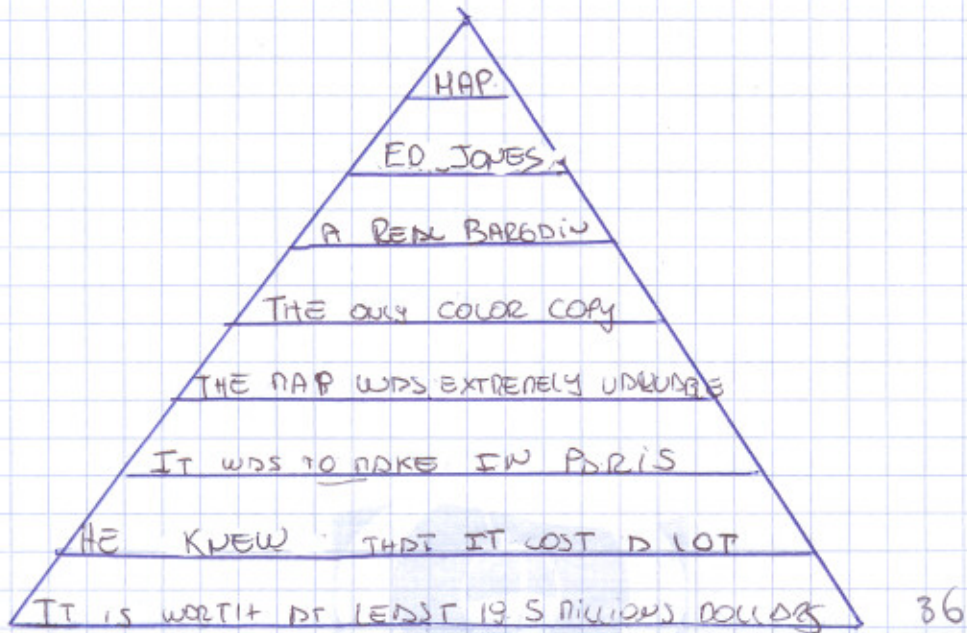 MAP
ED JONES
A REAL BARGAIN
THE ONLY COLOR COPY
THE MAP WAS EXTREMELY VALUABLE
IT WAS TO MAKE IN PARIS
HE KNEW THAT IT COST A LOT
IT IS WORTH AT LEAST 19.5 MILLIONS DOLLARS
36